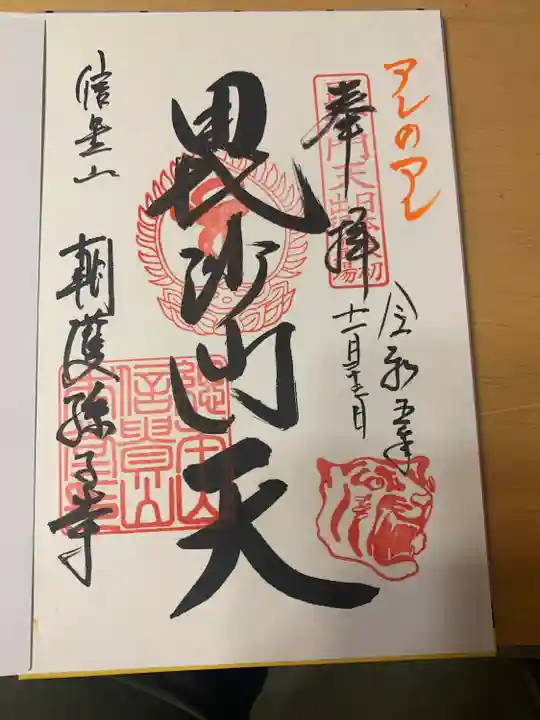 アレのアレ
奉拝
令和五年
十一月十七日
毘沙門天
信貴山 朝護孫子寺